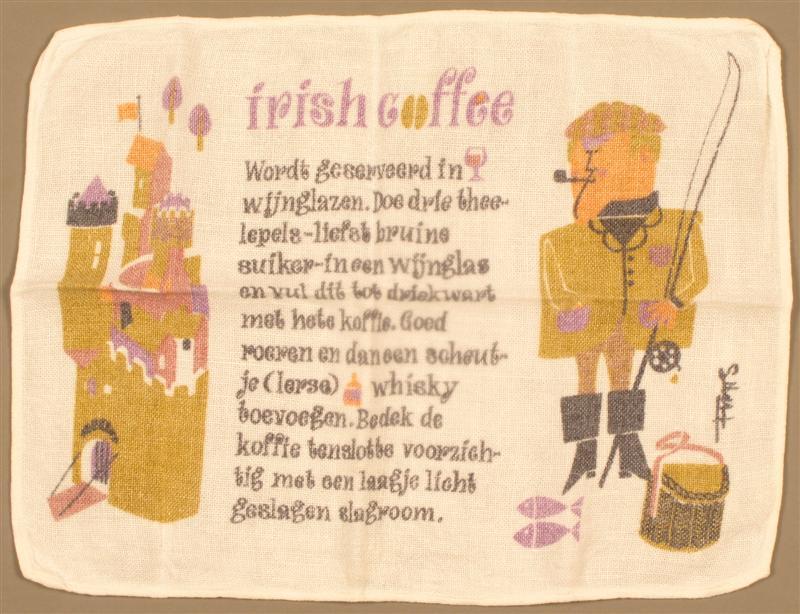 irish coffee
Wordt geserveerd in
wijnglazen. Doe drie thee-
lepels-liefst bruine
suiker-in een wijnglas
en vul dit tot driekwart
met hete koffie. Goed
roeren en dan een scheut-
je (Ierse) whisky
toevoegen. Bedek de
koffie tenslotte voorzich-
tig met een laagje licht
geslagen slagroom.